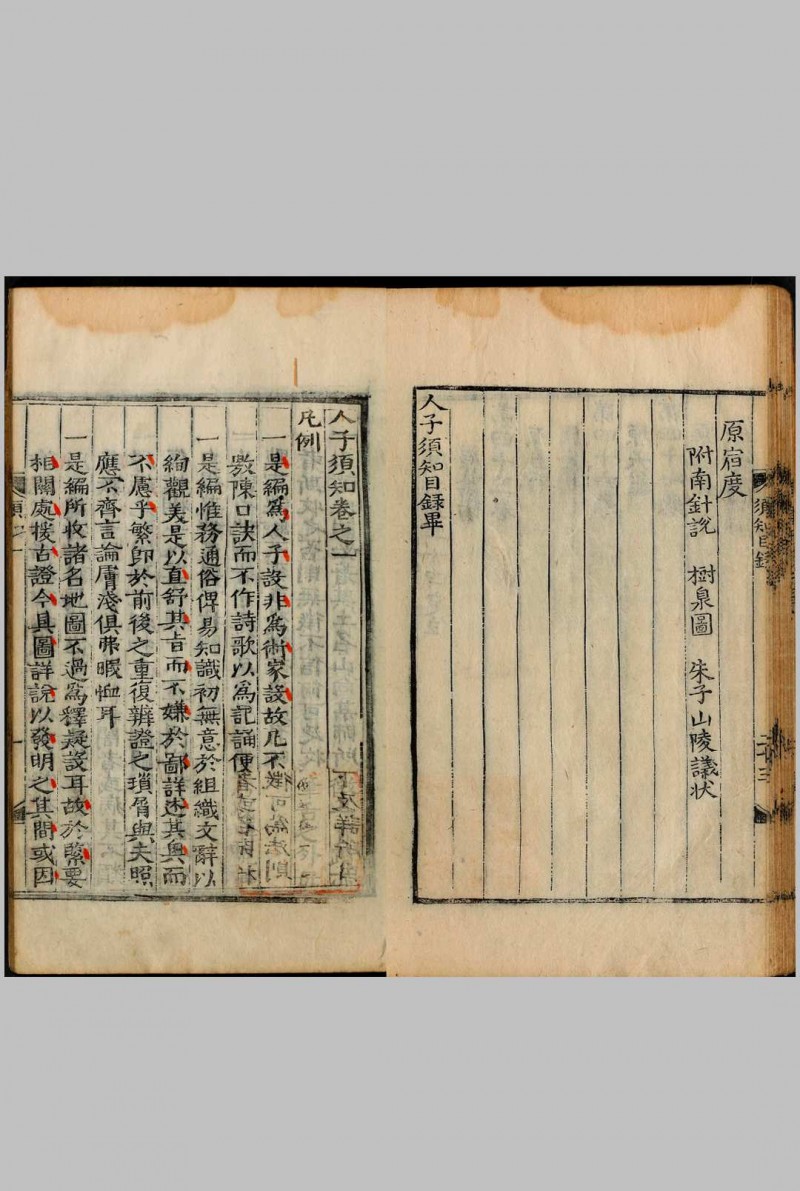 原宿度
附南針說 樹泉圖 朱子山陵議状
人子須知目録畢
須知目録
二十三
人子須知卷之一
凡例
一是編為人子設非為術家設故凡不
敷陳口訣而不作詩歌以為記誦便
一是編惟務通俗俾易知識初無意於組織文辭以
絢觀美是以直舒其旨而不嫌於鄙詳述其奥而
不慮乎繁即於前後之重復辨證之瑣屑與夫照
應不齊言論膚淺俱弗暇恤耳
一是編所收諸名地圖不過為釋疑設耳故於緊要
相關處援古證今具圖詳說以發明之其間或因